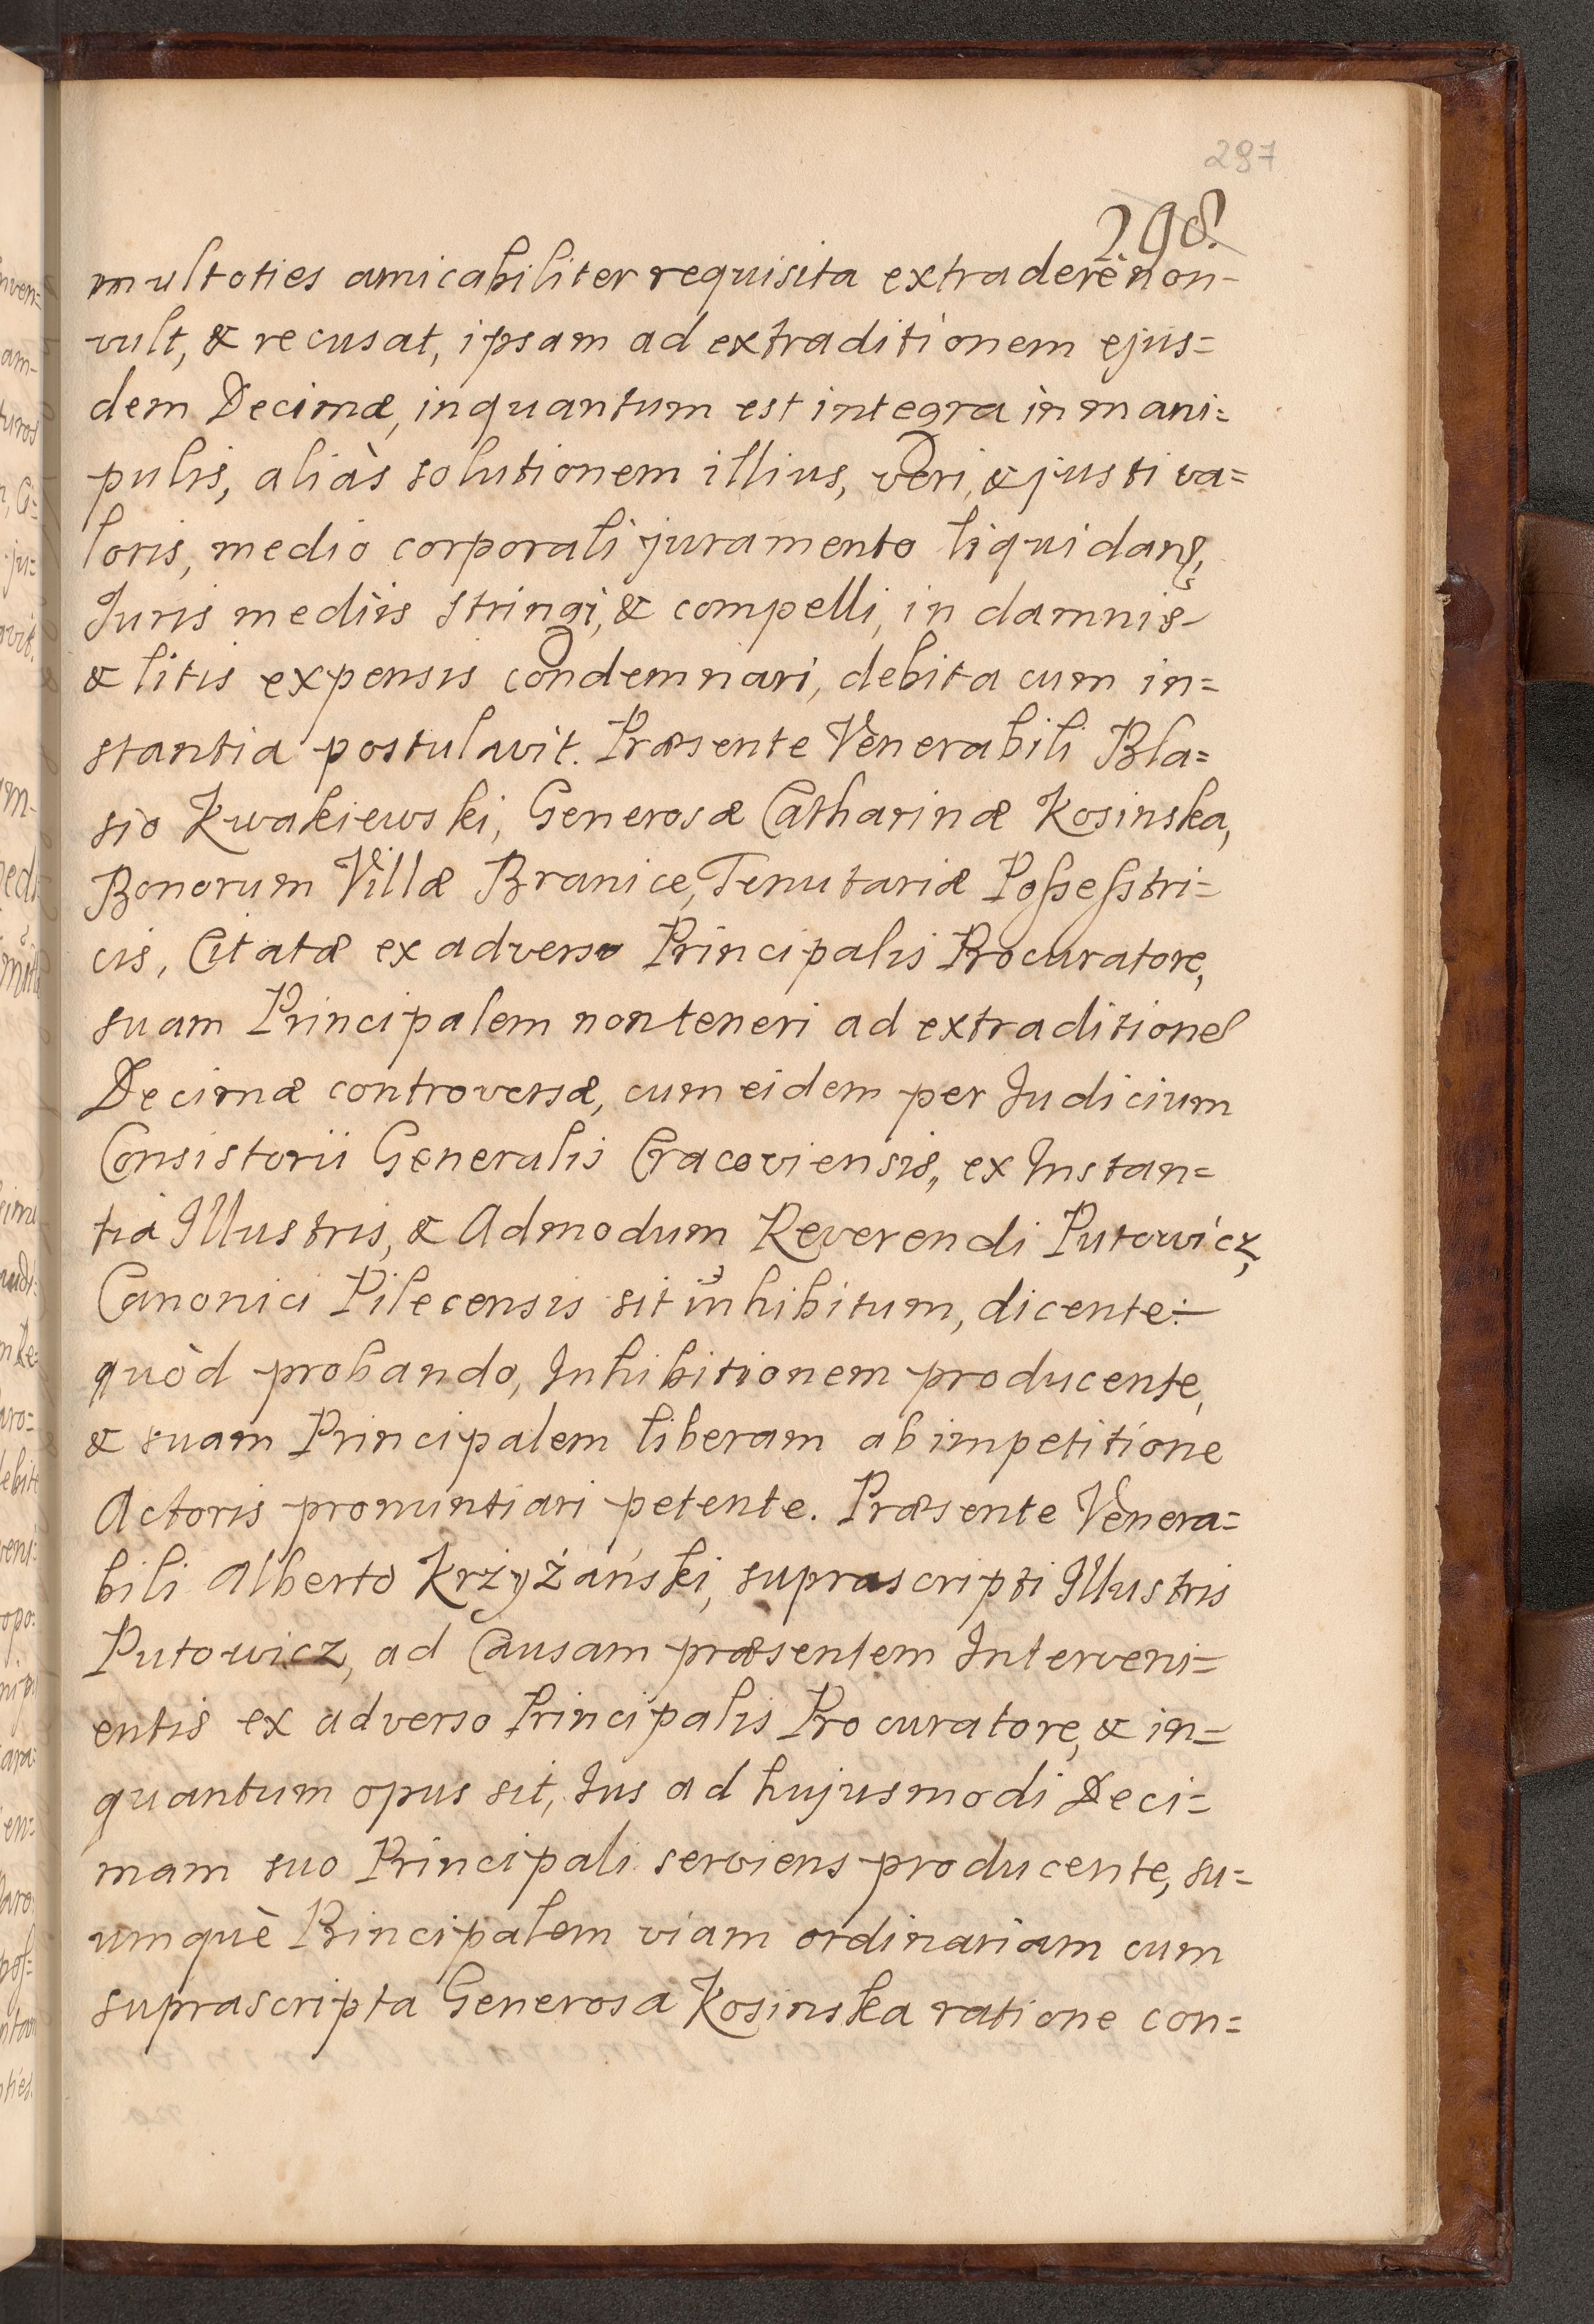 297
298
multoties amicabiliter requisita extraderè non-
vult, & recusat, ipsam ad extraditionem ejus=
dem Decimæ, inquantum est integra in mani=
pulis, aliàs solutionem illius, veri, & justi va=
loris, medio corporali juramento liquidans,
Juris mediis stringi, & compelli, in damnis-
& litis expensis condemnari, debita cum in=
stantia postulavit. Præsente Venerabili Bla=
sio Kwakiewski, Generosæ Catharinæ Kosinska,
Bonorum Villæ Branice, Tenutariæ Possesstri=
cis, Citatæ ex adverso Principalis Procuratore,
suam Principalem non teneri ad extraditione
Decimæ controversæ, cum eidem per Judicium
Consistorii Generalis Cracoviensis, ex Instan=
tia Illustris, & Admodum Reverendi Putowicz,
Canonici Pilecensis sit inhibitum, dicente:-
quòd probando, Inhibitionem producente,
& suam Principalem liberam ab impetitione
Actoris pronuntiari petente. Præsente Venera=
bili Alberto Krżyżański, suprascripti Illustris
Putowicz, ad Causam præsentem Interveni=
entis ex adverso Principalis Procuratore, & in=
quantum opus sit, Jus ad hujusmodi Deci=
mam suo Principali serviens producente, su=
umquè Principalem viam ordinariam cum
suprascripta Generosa Kosinska ratione con=